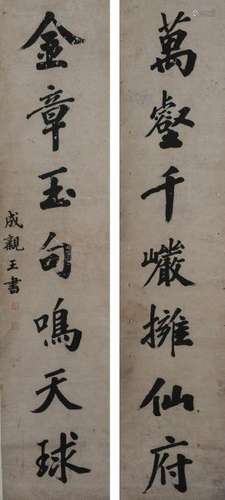 萬壑千巖擁仙府
金章玉句鳴天球
成親王書